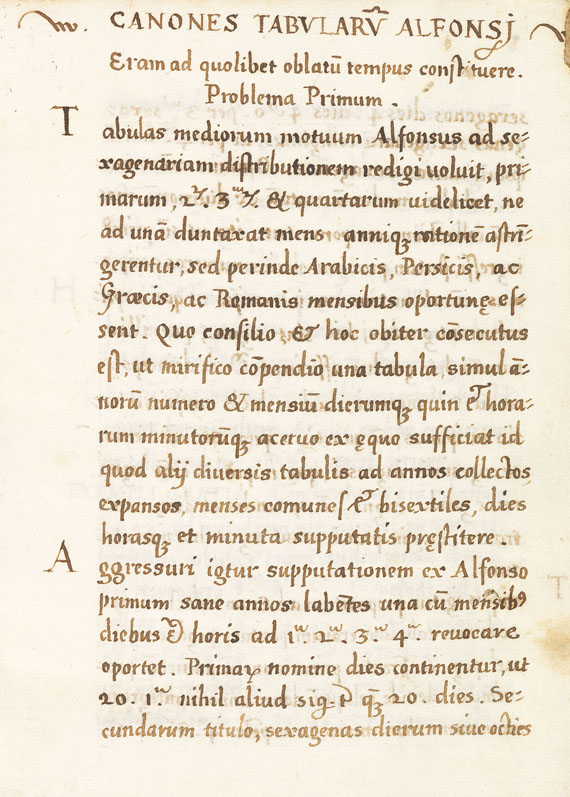 CANONES TABVLARŪ ALFONSJ
Eram ad quolibet oblatū tempus constituere.
Problema Primum.
Tabulas mediorum motuum Alfonsus ad se-
xagenariam distributionem redigi voluit, pri-
marum, 2ꝝ. 3ꝝ & quartarum uidelicet, ne
ad unā duntaxat mens anniqꝫ rationē astrī-
gerentur, sed perinde Arabicis, Persicis, ac
Græcis, ac Romanis mensibus oportunę es-
sent. Quo consilio & hoc obiter cōsecutus
est, ut mirifico cōpendio una tabula simul ā-
norū numero & mensiū dierumqꝫ quin & hora-
rum minutorūqꝫ aceruo ex ęquo sufficiat id
quod alij diuersis tabulis ad annos collectos
expansos, menses comunes & bisextiles, dies
horasqꝫ et minuta supputatis pręstitere.
Aggressuri igtur supputationem ex Alfonso
primum sane annos labētes una cū mensibꝯ
diebus & horis ad 1ᵃ. 2ᵃ. 3ᵃ. 4ᵃ. reuocare
oportet. Primaꝝ nomine dies continentur, ut
20. 1ᵃ nihil aliud sig. qꝫ 20. dies. Se-
cundarum titulo, sexagenas dierum siue octies